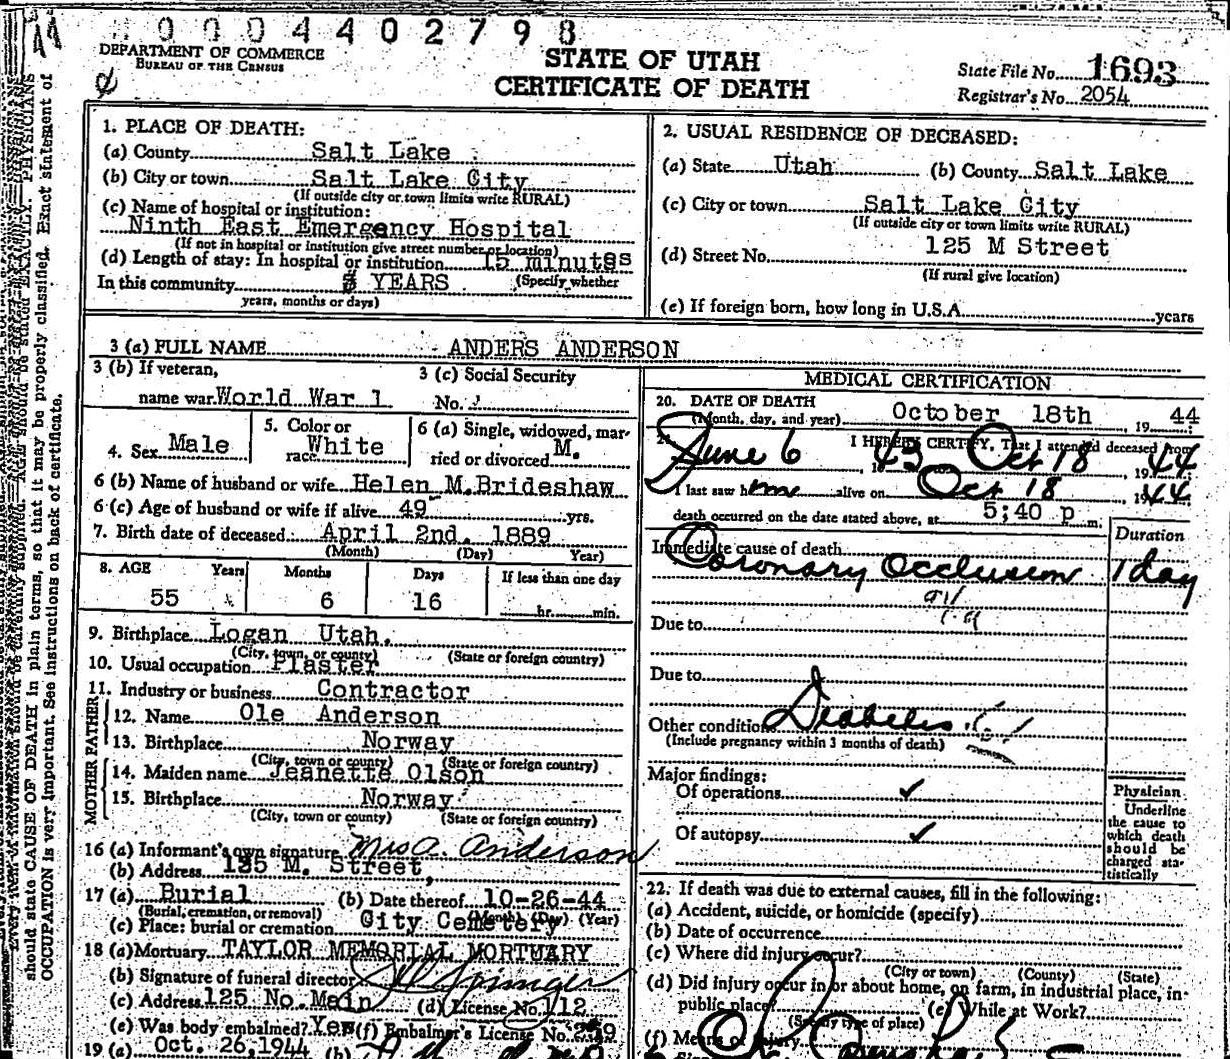 0004402798
DEPARTMENT OF COMMERCE
BUREAU OF THE CENSUS
STATE OF UTAH
CERTIFICATE OF DEATH
State File No. 1693
Registrar's No. 2054
1. PLACE OF DEATH:
(a) County Salt Lake
(b) City or town Salt Lake City
(If outside city or town limits write RURAL)
(c) Name of hospital or institution:
Ninth East Emergency Hospital
(If not in hospital or institution give street number or location)
(d) Length of stay: In hospital or institution 15 minutes
In this community YEARS (Specify whether
years, months or days)
2. USUAL RESIDENCE OF DECEASED:
(a) State Utah (b) County Salt Lake
(c) City or town Salt Lake City
(If outside city or town limits write RURAL)
(d) Street No. 125 M Street
(If rural give location)
(e) If foreign born, how long in U.S.A. years
3 (a) FULL NAME ANDERS ANDERSON
3 (b) If veteran,
name war World War 1
3 (c) Social Security
No.
4. Sex Male
5. Color or
race White
6 (a) Single, widowed, mar-
ried or divorced M.
6 (b) Name of husband or wife Helen M.Brideshaw
6 (c) Age of husband or wife if alive 49 yrs.
7. Birth date of deceased: April 2nd. 1889
(Month) (Day) Year)
8. AGE Years Months Days If less than one day
55 6 16 hr. min.
9. Birthplace Logan Utah.
(City, town, or county) (State or foreign country)
10. Usual occupation Plaster
11. Industry or business Contractor
FATHER
12. Name Ole Anderson
13. Birthplace Norway
(City, town or county) (State or foreign country)
MOTHER
14. Maiden name Jeanette Olson
15. Birthplace Norway
(City, town or county) (State or foreign country)
16 (a) Informant's own signature Mrs A. Anderson
(b) Address M. Street,
17 (a) Burial (b) Date thereof 10-26-44
(Burial, cremation, or removal) (Month) (Day) (Year)
(c) Place: burial or cremation City Cemetery
18 (a) Mortuary TAYLOR MEMORIAL MORTUARY
(b) Signature of funeral director
(c) Address 125 No. Main (d) License No. 112
(e) Was body embalmed? Yes (f) Embalmer's License No.
19 (a) Oct. 26,1944 (b)
MEDICAL CERTIFICATION
20. DATE OF DEATH
(Month, day, and year) October 18th 19 44
I HEREBY CERTIFY, That I attended deceased from
June 6 19 43 Oct 18 19 44
I last saw him alive on Oct 18 19 44
death occurred on the date stated above, at 5;40 p m.
Duration
Immediate cause of death
Coronary Occlusion 1 day
Due to
Due to
Other conditions Diabetes
(Include pregnancy within 3 months of death)
Major findings:
Of operations ✓
Of autopsy ✓
Physician
Underline
the cause to
which death
should be
charged sta-
tistically
22. If death was due to external causes, fill in the following:
(a) Accident, suicide, or homicide (specify)
(b) Date of occurrence
(c) Where did injury occur?
(City or town) (County) (State)
(d) Did injury occur in or about home, on farm, in industrial place, in
public place? (e) While at Work?
(Specify type of place)
(f) Means of injury
should state CAUSE OF DEATH in plain terms, so that it may be properly classified. Exact statement of
OCCUPATION is very important. See instructions on back of certificate.